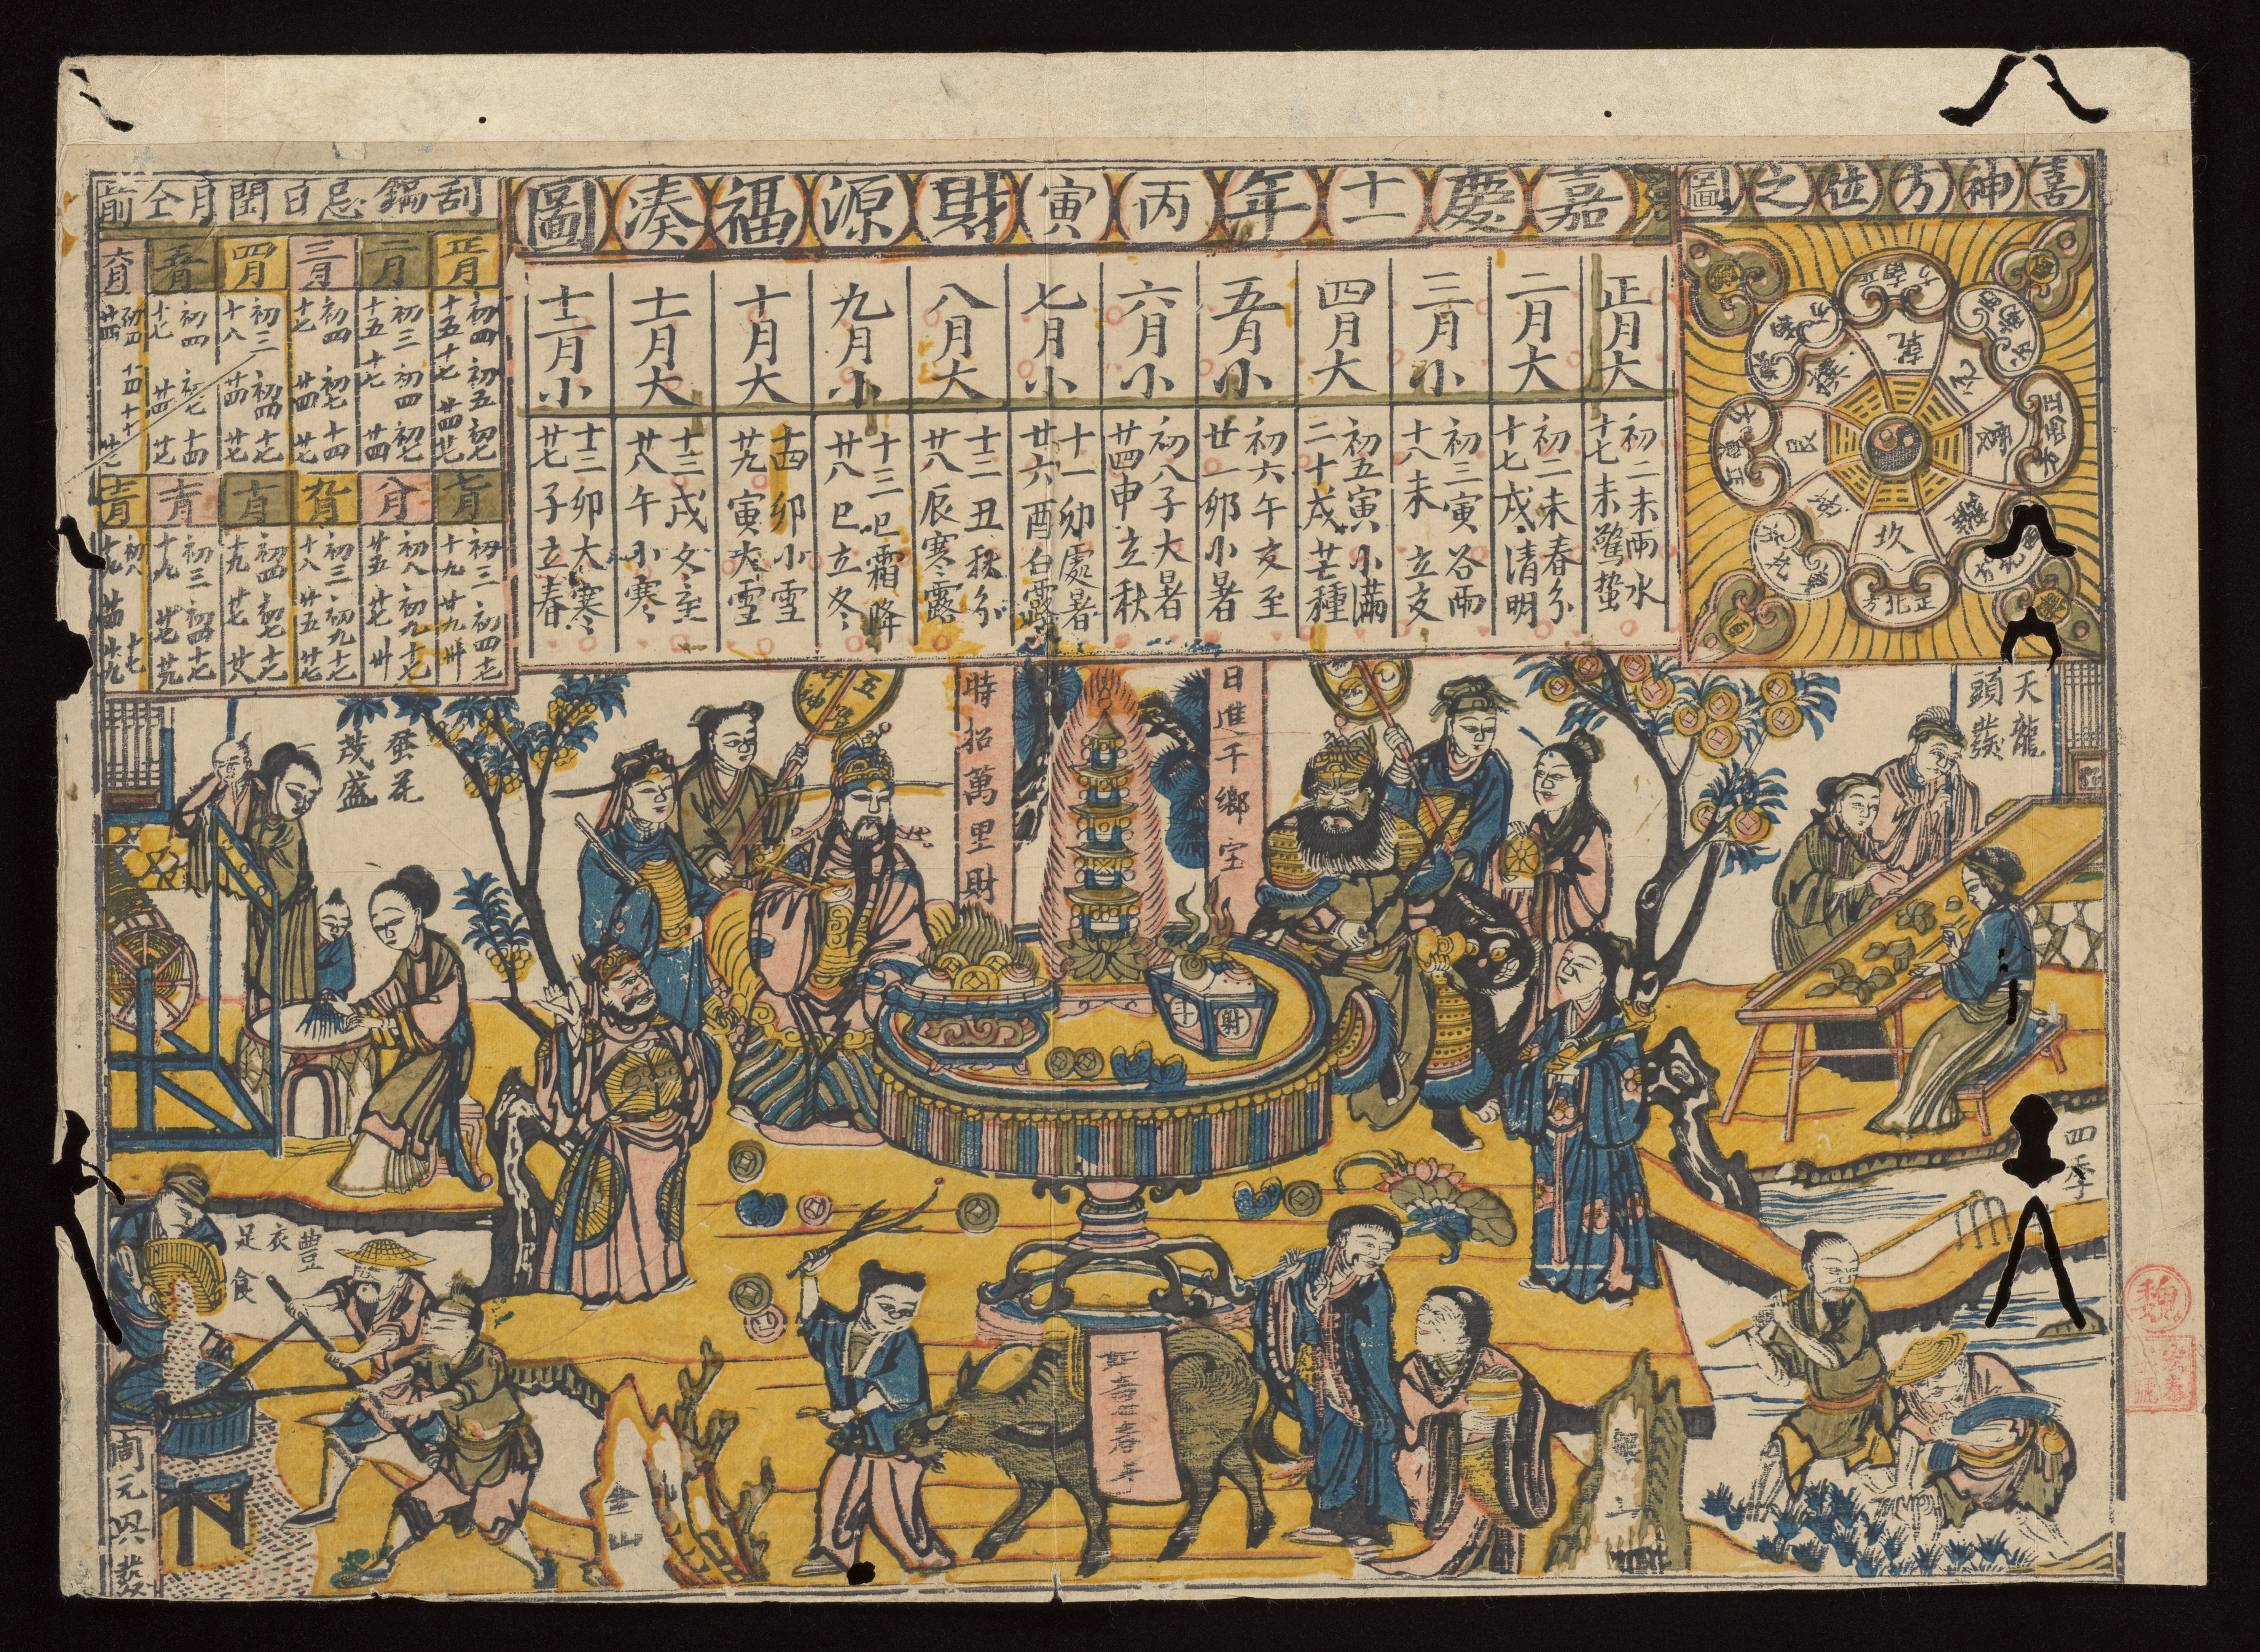 喜神方位之圖
嘉慶十一年丙寅財源福湊圖
刮鍋忌日閏月仝前
正月大
初二未雨水
十七未驚蟄
二月大
初二未春分
十七戌清明
三月小
初三寅谷雨
十八未立夏
四月大
初五寅小滿
二十戌芒種
五月小
初六午夏至
廿一卯小暑
六月小
初八子大暑
廿四申立秋
七月小
十一卯處暑
廿六酉白露
八月大
十二丑秋分
廿八辰寒露
九月小
十三巳霜降
廿八巳立冬
十月大
十四卯小雪
廿九寅大雪
十一月大
十三戌冬至
廿八午小寒
十二月小
十二卯大寒
廿七子立春
正月
初四 初五 初七
十五 十七 廿四 廿七
二月
初三 初四 初七
十五 十七 廿四
三月
初四 初七 十四
十七 廿四 廿七
四月
初三 初四 十七
十八 廿四 廿七
五月
初四 初七 十四
十七 廿四 廿七
六月
初四 十四 十七
廿四 廿七
七月
初三 初四 十七
十九 廿九 卅
八月
初八 初九 十七
廿五 廿七 卅
九月
初三 初九 十七
十八 廿五 廿七
十月
初四 初七 十七
十九 廿七 廿八
十一月
初三 初四 十七
十九 廿七 廿九
十二月
初八 十七
十九 廿四 廿九
乾
坎
艮
震
正北方
正南方
正西方
正東方
天龍
頭發
日進千鄉宝
時招萬里財
五
蚕花
茂盛
四季
豐衣
足食
斗
財
金山
周元興發
魏